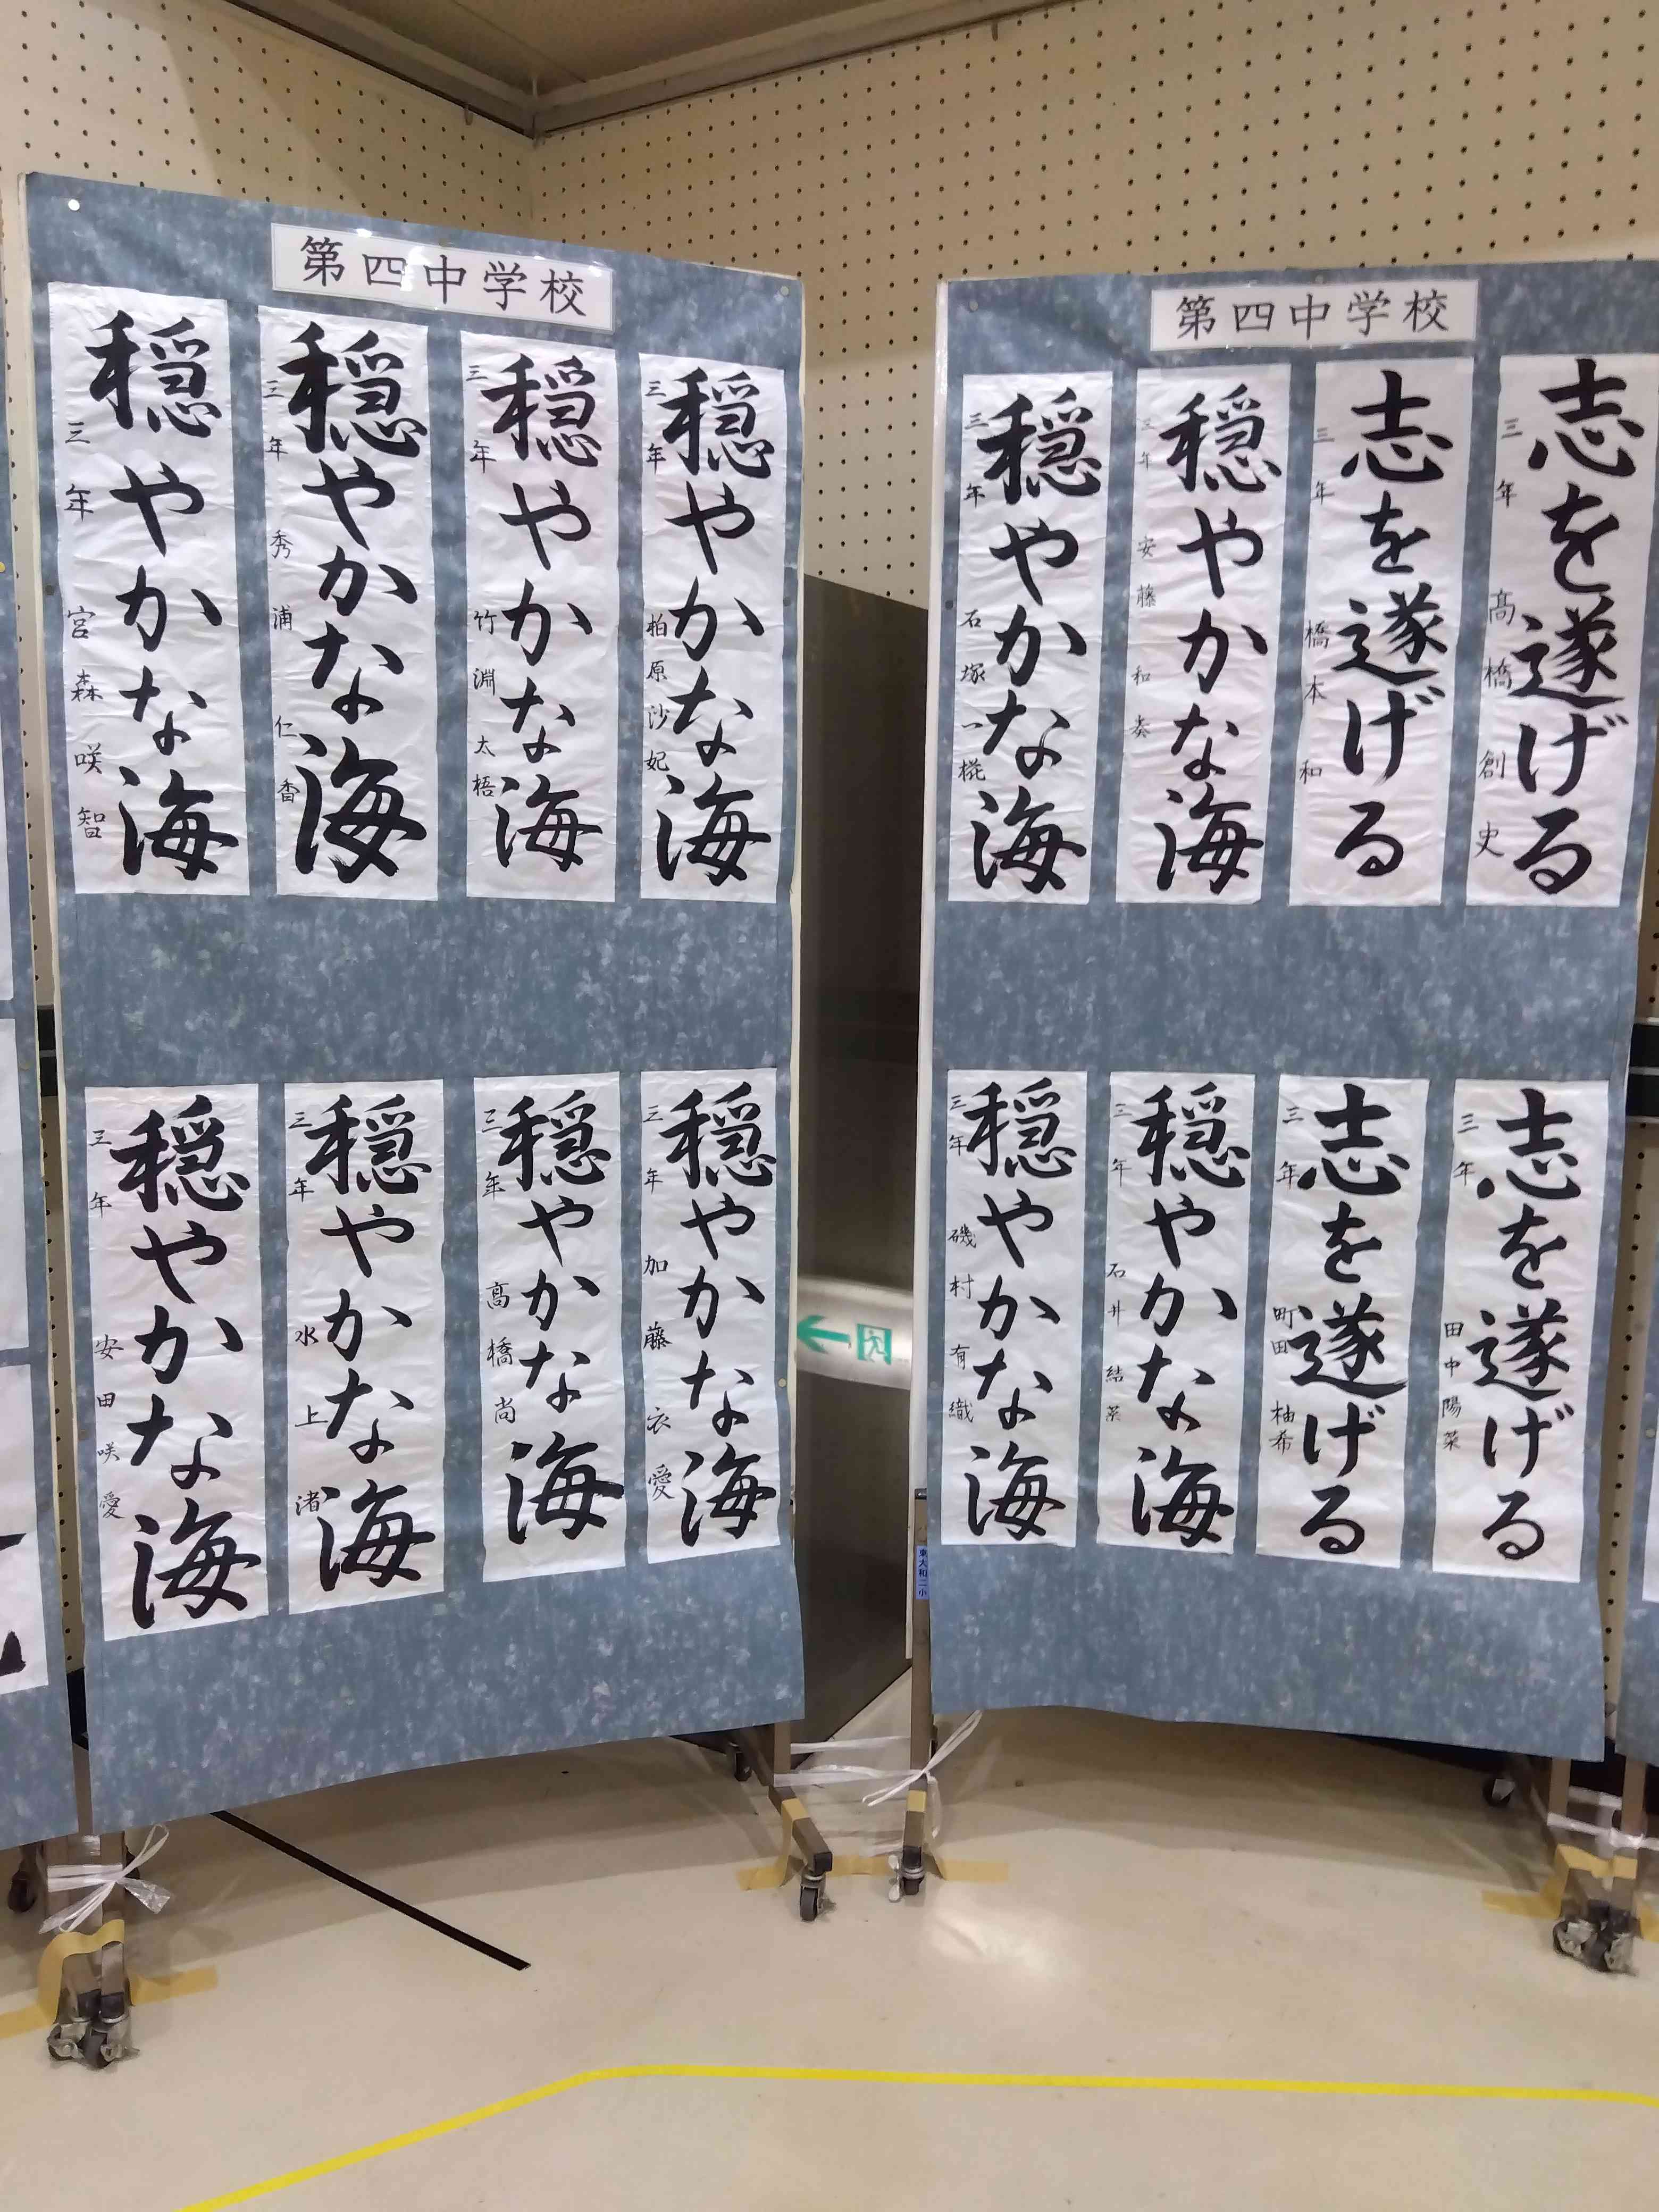 第四中学校
穏やかな海
三年 宮森 咲智
穏やかな海
三年 秀浦 仁香
穏やかな海
三年 竹淵 太梧
穏やかな海
三年 柏原 沙妃
穏やかな海
三年 安田 咲愛
穏やかな海
三年 水上 渚
穏やかな海
三年 髙橋 尚
穏やかな海
三年 加藤 衣愛
第四中学校
穏やかな海
三年 石塚 一椛
穏やかな海
三年 安藤 和奏
志を遂げる
三年 橋本 和
志を遂げる
三年 髙橋 創史
穏やかな海
三年 磯村 有織
穏やかな海
三年 石井 結菜
志を遂げる
三年 町田 柚希
志を遂げる
三年 田中 陽菜
東大和二小